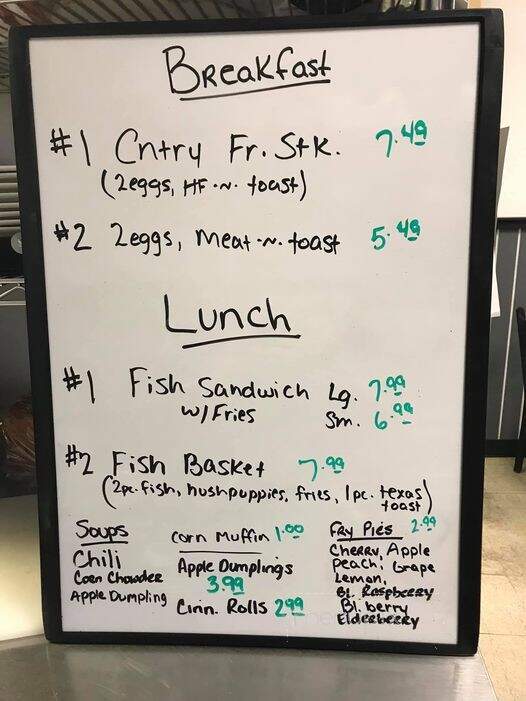 Breakfast
#1 Cntry Fr. Stk. 7.49
(2eggs, HF -n- toast)
#2 2eggs, meat -n- toast 5.49
Lunch
#1 Fish Sandwich Lg. 7.99
w/ Fries Sm. 6.99
#2 Fish Basket 7.99
(2pc. fish, hushpuppies, fries, 1pc. texas
toast)
Soups
Chili
Corn Chowder
Apple Dumpling
Corn Muffin 1.00
Apple Dumplings
3.99
Cinn. Rolls 2.99
Fry Pies 2.99
Cherry, Apple
Peach, Grape
Leman,
Bl. Raspberry
Bl. berry
Elderberry